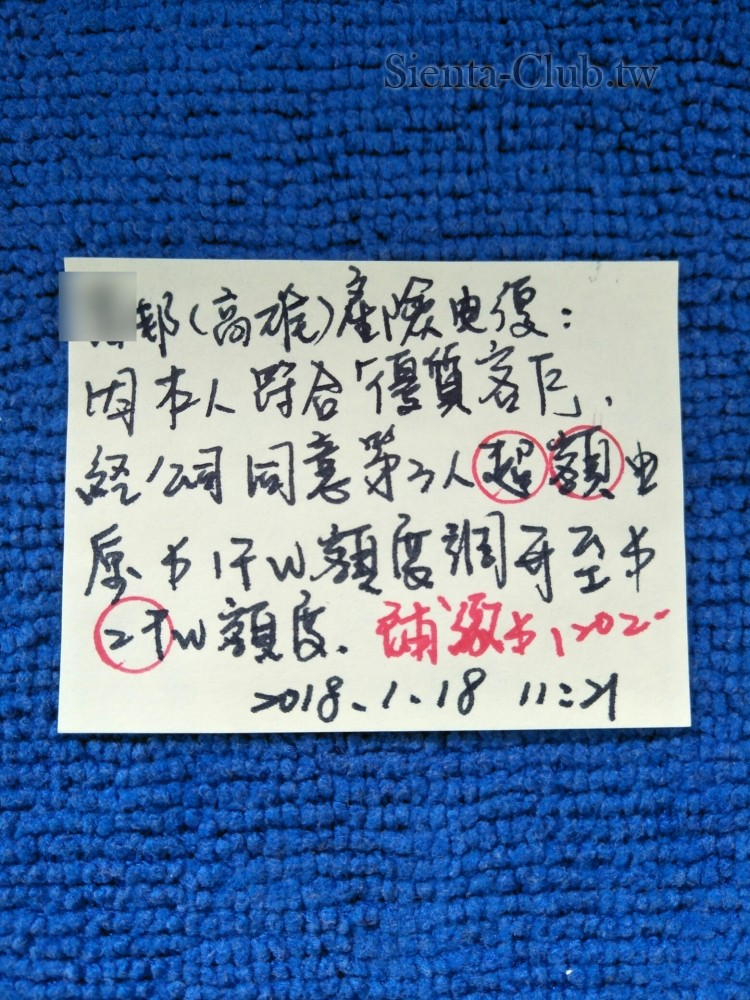 Sienta-Club.tw
邦(高雄)產險电復:
因本人符合「優質客戶」,
經公司同意第3人超額由
原$1千W額度調升至$
2千W額度. 補繳$1202-
2018.1.18 11:21